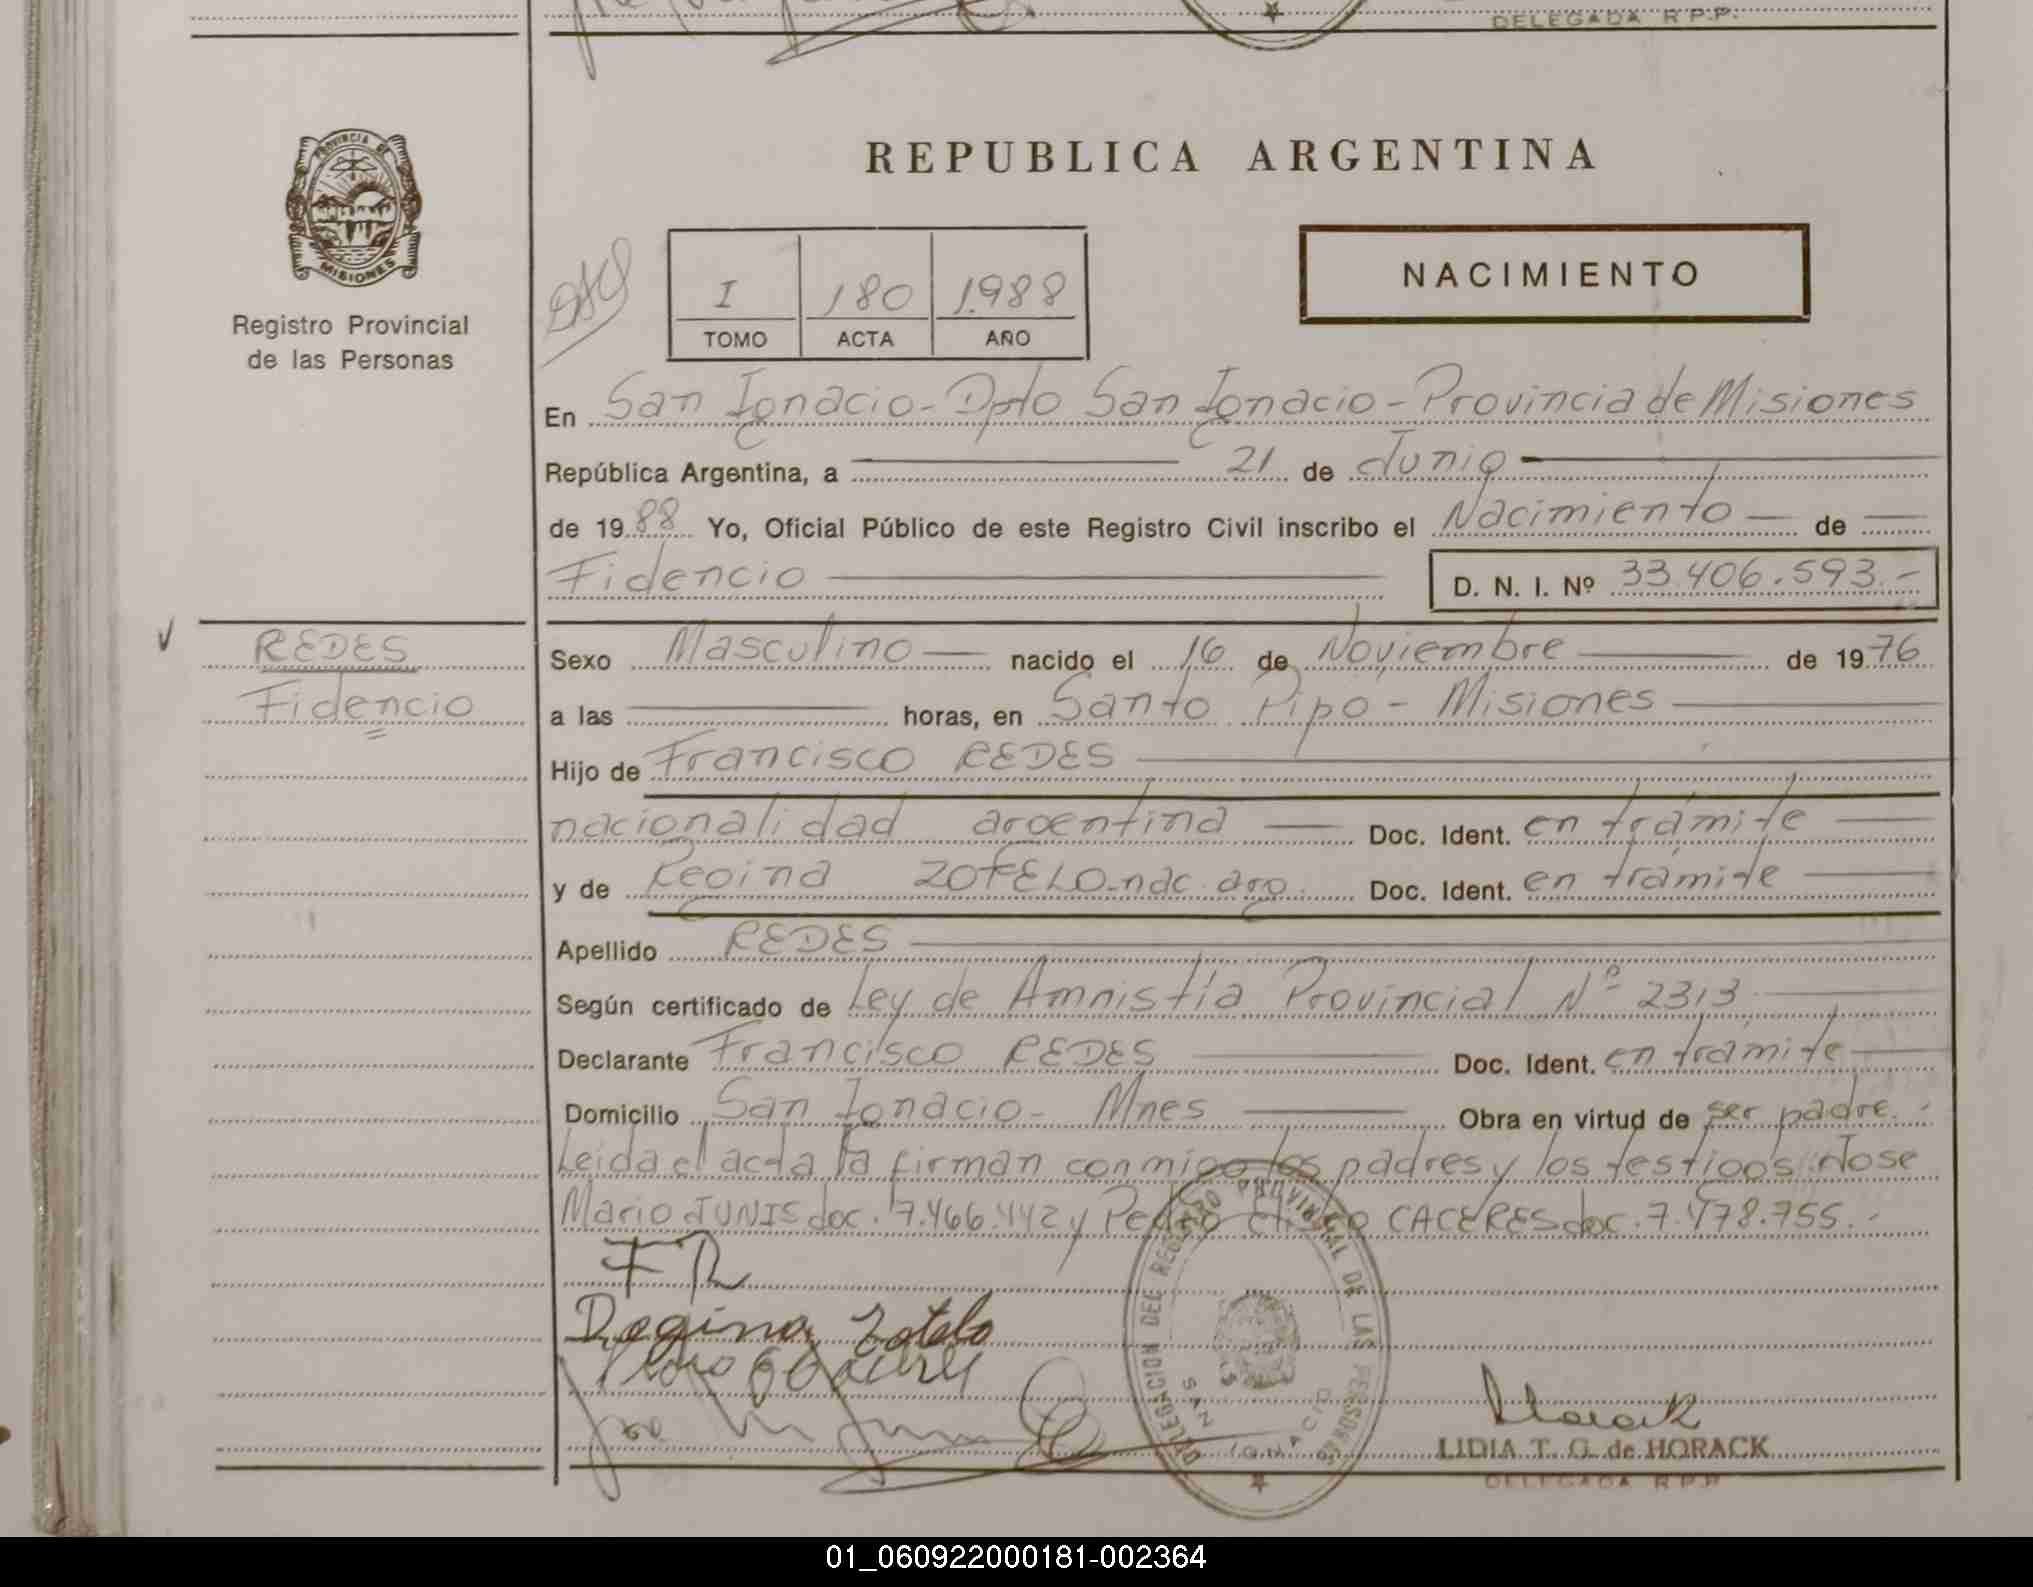 DELEGADA R.P.P.
PROVINCIA DE
MISIONES
Registro Provincial
de las Personas
REPUBLICA ARGENTINA
NACIMIENTO
I 180 1988
TOMO ACTA AÑO
En San Ignacio - Dpto San Ignacio - Provincia de Misiones
República Argentina, a 21 de Junio
de 1988 Yo, Oficial Público de este Registro Civil inscribo el Nacimiento de
Fidencio D. N. I. Nº 33.406.593.-
REDES
Fidencio
Sexo Masculino nacido el 16 de Noviembre de 1976
a las horas, en Santo Pipo - Misiones
Hijo de Francisco REDES
nacionalidad argentina Doc. Ident. en trámite
y de Regina ZOTELO-nac. arg. Doc. Ident. en trámite
Apellido REDES
Según certificado de Ley de Amnistía Provincial Nº 2313
Declarante Francisco REDES Doc. Ident. en trámite
Domicilio San Ignacio - Mnes Obra en virtud de ser padre.-
Leida el acta la firman conmigo los padres y los testigos: Jose
Mario JUNIS doc. 7.466.442 y Pedro CACERES doc. 7.478.755.-
FR
Regina Zotelo
DELEGACION DEL REGISTRO PROVINCIAL DE LAS PERSONAS
SAN IGNACIO
Horack
LIDIA T. G. de HORACK
DELEGADA R.P.P.
01_060922000181-002364